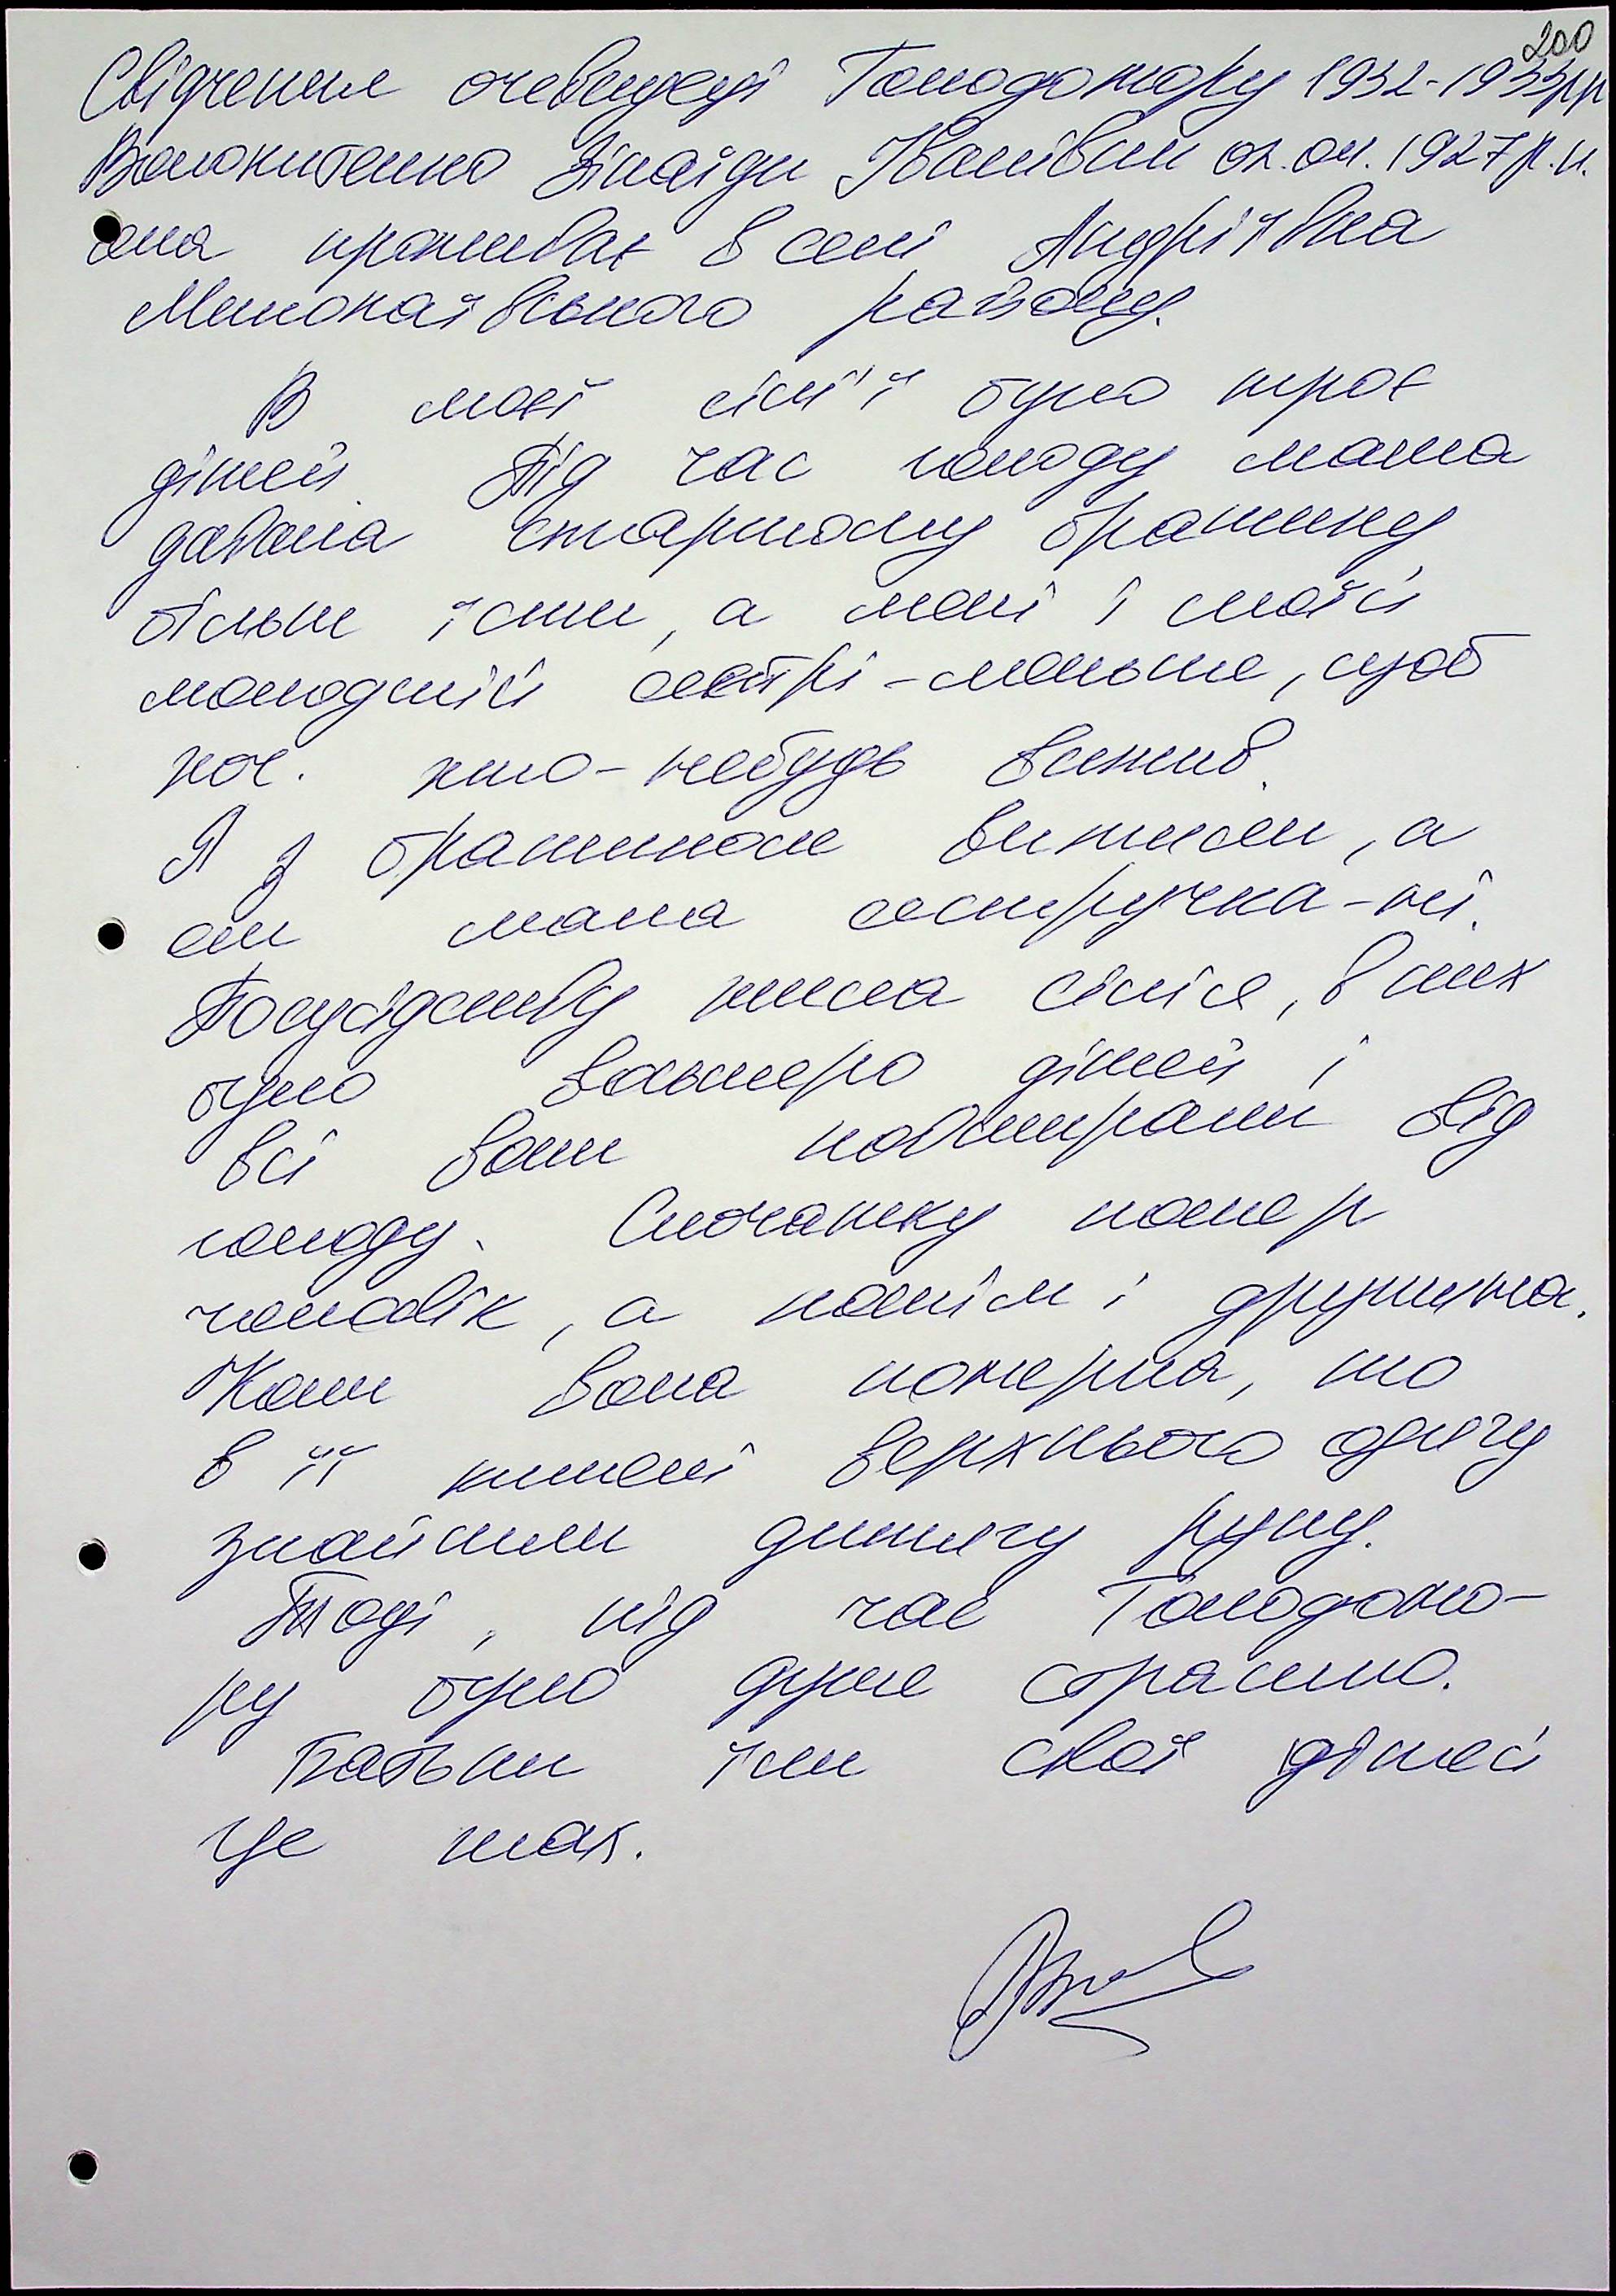 200
Свідчення очевидця Голодомору 1932-1933рр
Волокитенко Зінаїди Іванівни 1927р.н.
яка проживає в селі Андріївна
Миколаївського району.
В моєї сім'ї було троє
дітей. Під час голоду мама
давала старшому братику
більше їсти, а мені і моїй
молодшій сестрі - меньше, щоб
хоч. хто-небудь вижив.
Я з братиком вижили, а
ми мала сестричка - ні.
По сусідству жила сім'я, в них
було восьмеро дітей і
всі вони повмирали від
голоду. Спочатку помер
чоловік, а потім і дружина.
Коли вона померла, то
в її кишені верхнього одягу
знайшли дитячу руку.
Тоді, під час Голодомо-
ру було дуже страшно.
Батьки їли своїх дітей
це так.